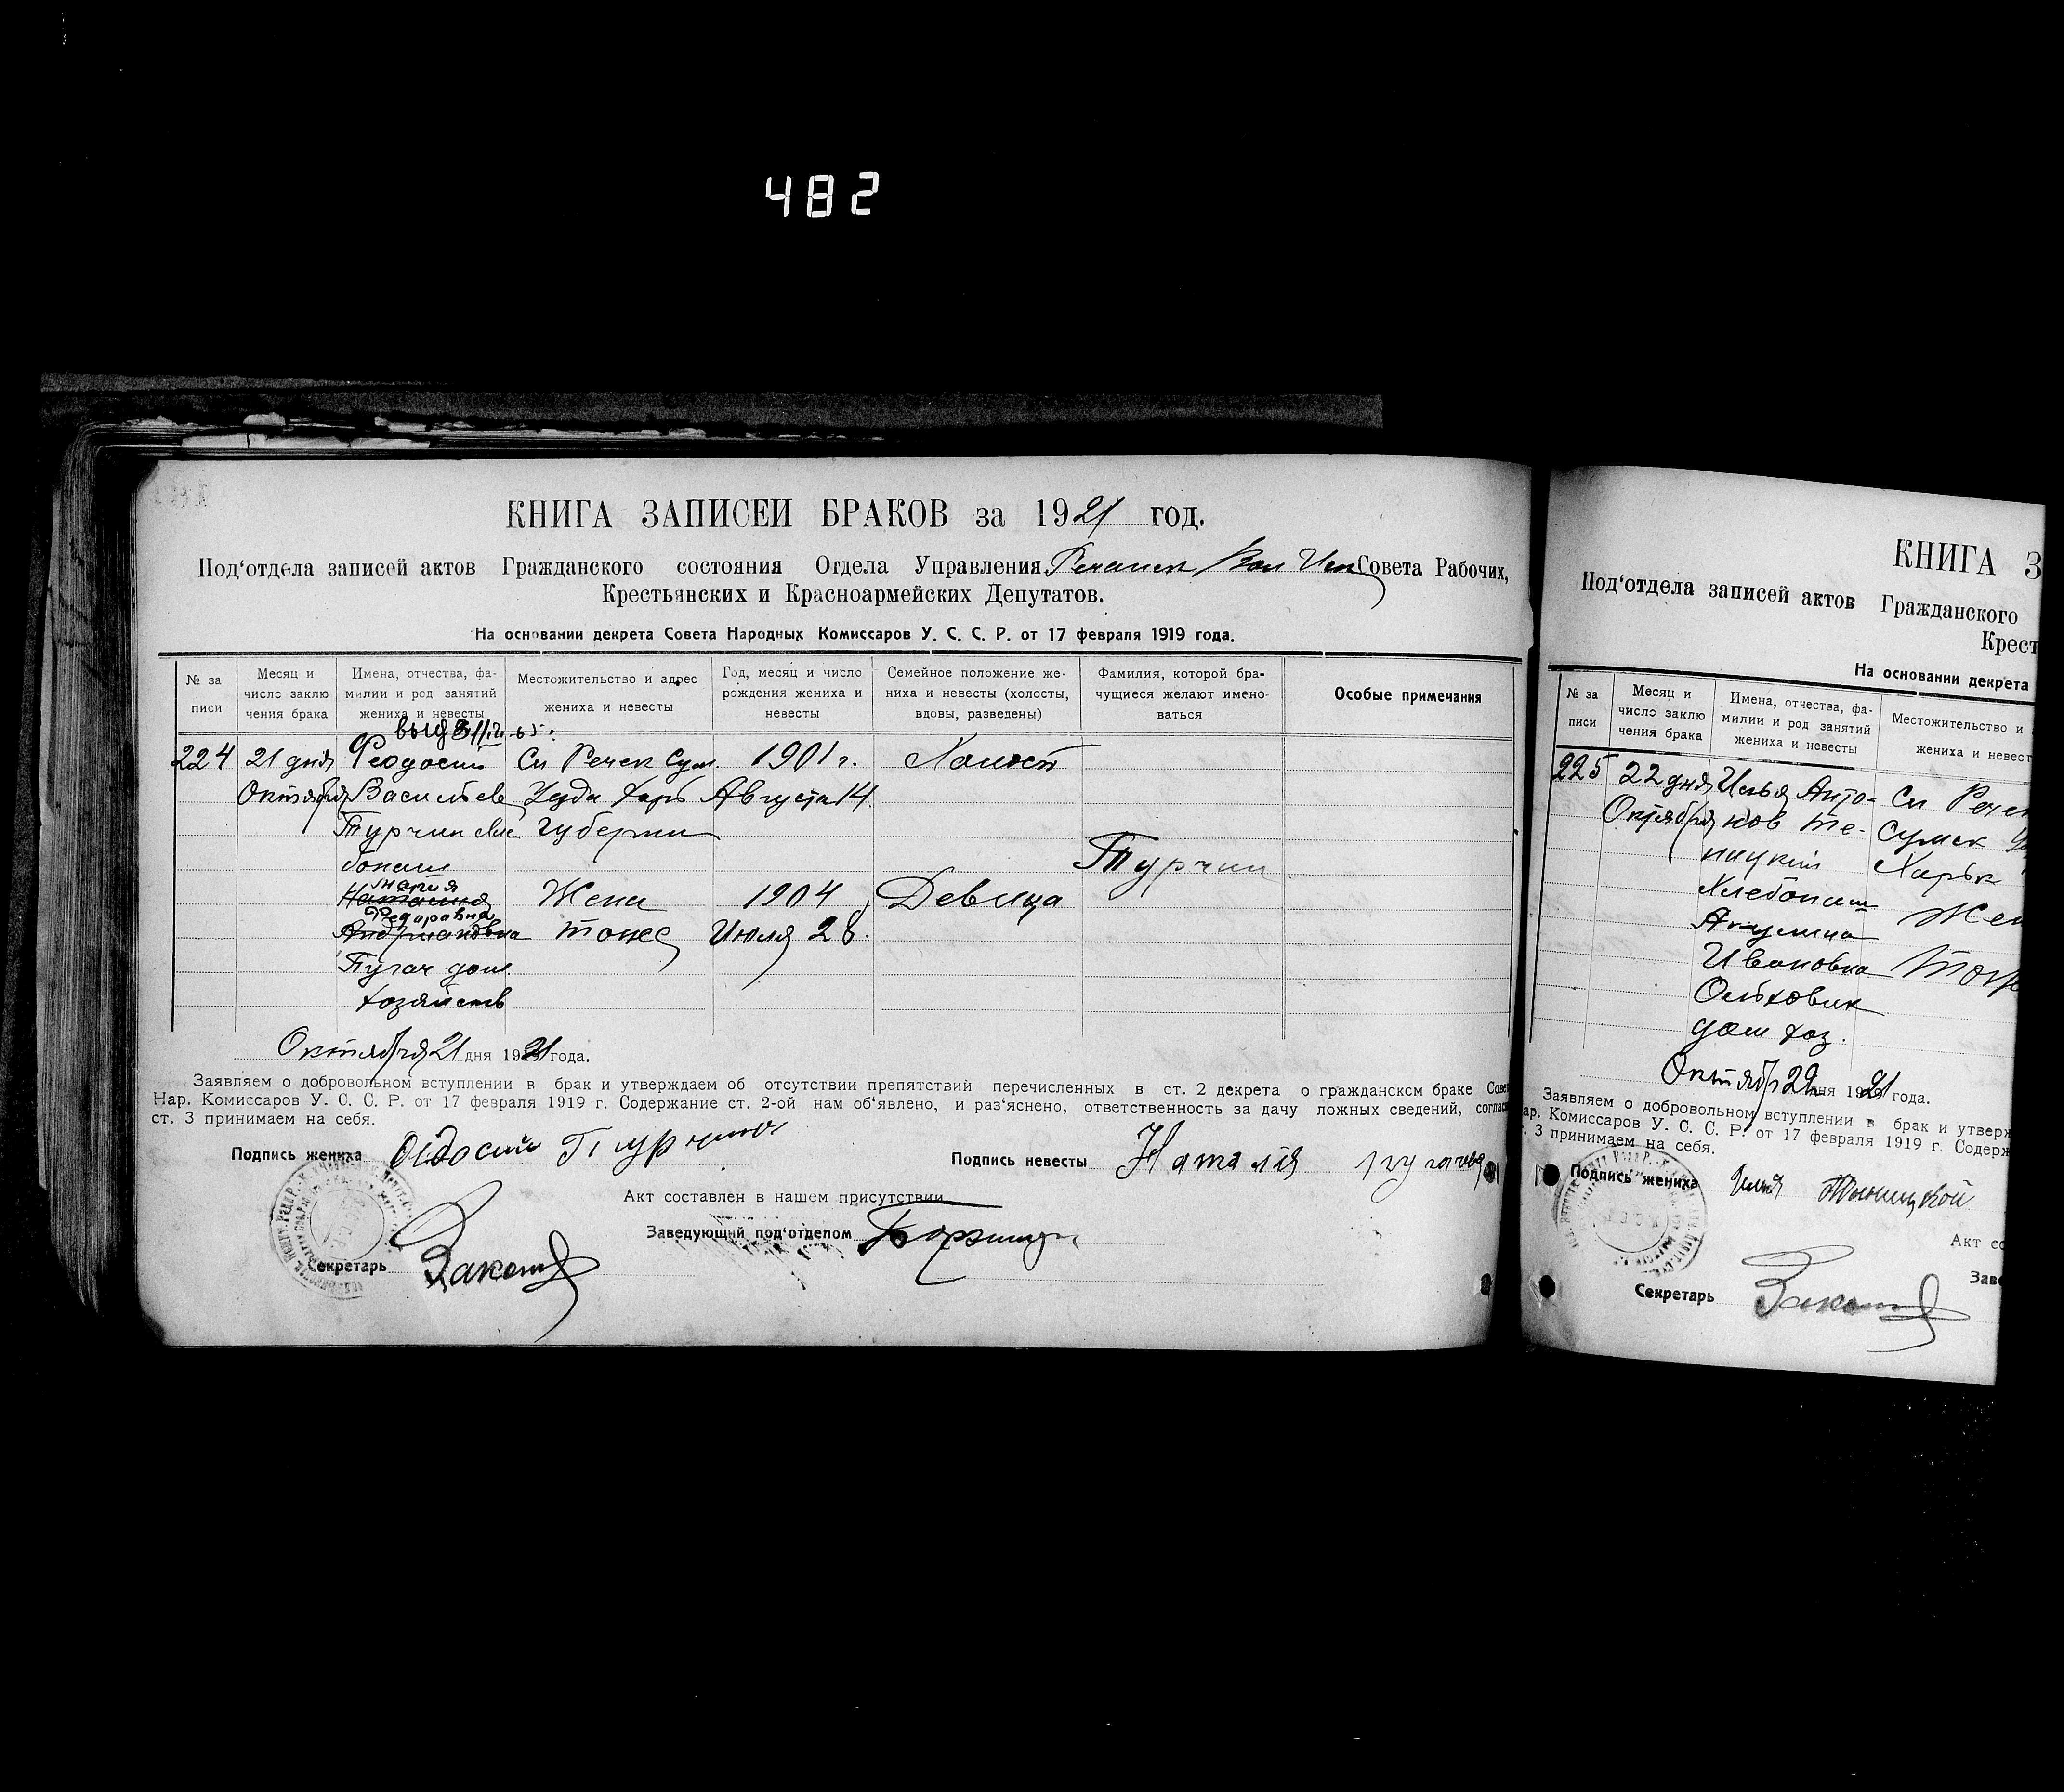 482
КНИГА ЗАПИСЕЙ БРАКОВ за 1921 год.
Под‘отдела записей актов Гражданского состояния Отдела Управления Речанск Вол Исп Совета Рабочих,
Крестьянских и Красноармейских Депутатов.
На основании декрета Совета Народных Комиссаров У. С. С. Р. от 17 февраля 1919 года.
№ за писи
Месяц и число заклю чения брака
Имена, отчества, фа- милии и род занятий жениха и невесты
Местожительство и адрес жениха и невесты
Год, месяц и число рождения жениха и невесты
Семейное положение же- ниха и невесты (холосты, вдовы, разведены)
Фамилия, которой бра- чущиеся желают имено- ваться
Особые примечания
224 21 дня Феодосий Сл Речек Сум. 1901 г. Холост
Октября Васильев Уезда Харь Августа 14.
Турчин Хле губернии
бопаш Турчин
Мария
Наталия Жена 1904 Девица
Федоровна
Андриановна тоже Июля 28.
Пугач дом
хозяйств
Октября 21 дня 1921 года.
Заявляем о добровольном вступлении в брак и утверждаем об отсутствии препятствий перечисленных в ст. 2 декрета о гражданском браке Сове
Нар. Комиссаров У. С. С. Р. от 17 февраля 1919 г. Содержание ст. 2-ой нам об‘явлено, и раз‘яснено, ответственность за дачу ложных сведений, соглас
ст. 3 принимаем на себя.
Подпись жениха Фідосий Турчин
Подпись невесты Наталия
Акт составлен в нашем присутствии
Заведующий под‘отделом
Секретарь
КНИГА З
Под‘отдела записей актов Гражданского
Крест
На основании декрета
№ за писи
Месяц и число заклю чения брака
Имена, отчества, фа- милии и род занятий жениха и невесты
Местожительство и
жениха и невест
225 22 дня Илья Анто- Сл Речек
Октября нов Те- Сумск
ницкий Харьк
Хлебопаш
Акулина Жен
Ивановна
Ольховик
дом хоз.
Октября 22 дня 1921 года.
Заявляем о добровольном вступлении в брак и утверж
ар. Комиссаров У. С. С. Р. от 17 февраля 1919 г. Содерж
. 3 принимаем на себя.
Подпись жениха Илья
Акт со
Заве
Секретарь